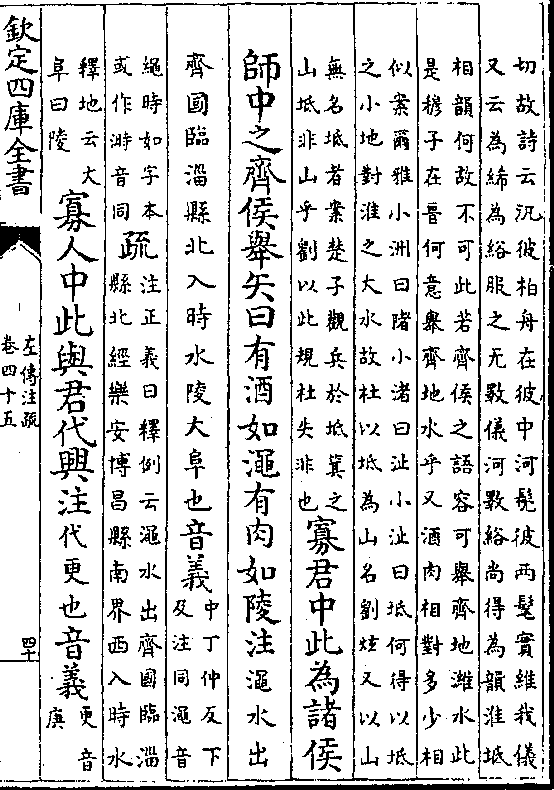 切故詩云汎彼柏舟在彼中河髧彼兩髦實維我儀
又云為絺為綌服之无斁儀河斁綌尚得為韻淮坻
相韻何故不可此若齊侯之語容可舉齊地濰水此
是穆子在晋何意舉齊地水乎又酒肉相對多少相
似案爾雅小洲曰陼小渚曰沚小沚曰坻何得以坻
之小地對淮之大水故杜以坻為山名劉炫又以山
無名坻者案楚子觀兵於坻箕之
山坻非山乎劉以此規杜失非也
寡君中此為諸侯
師中之齊侯舉矢曰有酒如澠有肉如陵注澠水出
齊國臨淄縣北入時水陵大阜也音義
中丁仲反下
及注同澠音
繩時如字本
或作溡音同
疏
注正義曰釋例云澠水出齊國臨淄
縣北經樂安博昌縣南界西入時水
釋地云大
阜曰陵
寡人中此與君代興注代更也音義
更音
庚
欽定四庫全書
左傳注疏
卷四十五
四十